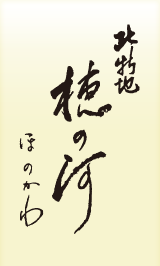 北新地
穂の河
ほのかわ